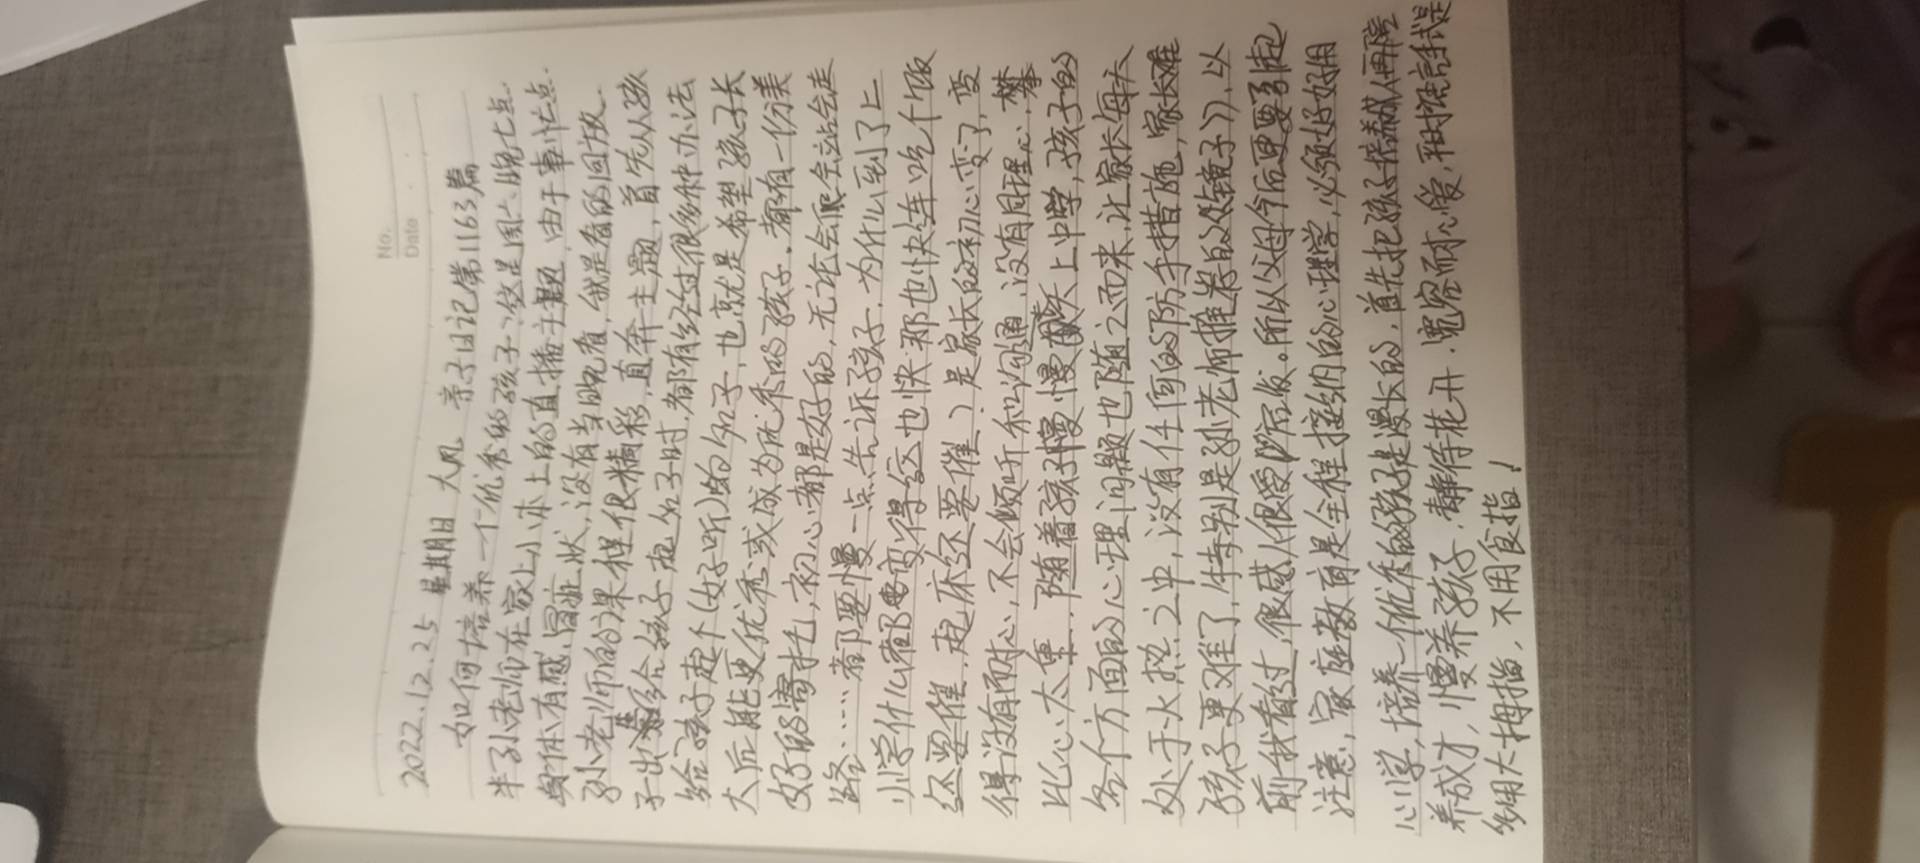 No.
Date
2022.12.25 星期日 大风 亲子日记第1163篇
如何培养一个优秀的孩子?这是周六晚七点
半孙老师在家上小木上的直播主题,由于事忙点
身体有感冒症状,没有当晚看,我是看的回放.
孙老师的课程很精彩,直奔主题,首先从孩
子出给孩子起名子时,都有经过很多种办法
给孩子起个(好听)的名子,也就是希望孩子长
大后能更优秀或成为优秀的孩子.都有一份美
好的寄托,初心都是好的,无论会爬会站会走
路……都要慢一点告诉孩子.为什么到了上
小学什么都要变得這也快那也快连吃个饭
还要催,起床还要催?是家长的初心变了,变
得没有耐心,不会倾听和沟通,没有同理心,攀
比心太重,随着孩子慢慢上中学,孩子的
各个方面的心理问题也随之而来,让家长每天
处于火热之中,没有任何的防手措施,家长难
孩子更难了,特别是孙老师推荐的《镜子》,以
前我看过,很感人很受启发。所以父母今后更要引起
注意,家庭教育是全程接纳的心理学,必须好好用
心学,培养一优秀的孩子是漫长的,首先把孩子培养成人再培
养成才,慢养孩子.静待花开.宽容耐心爱,
多用大拇指,不用食指!